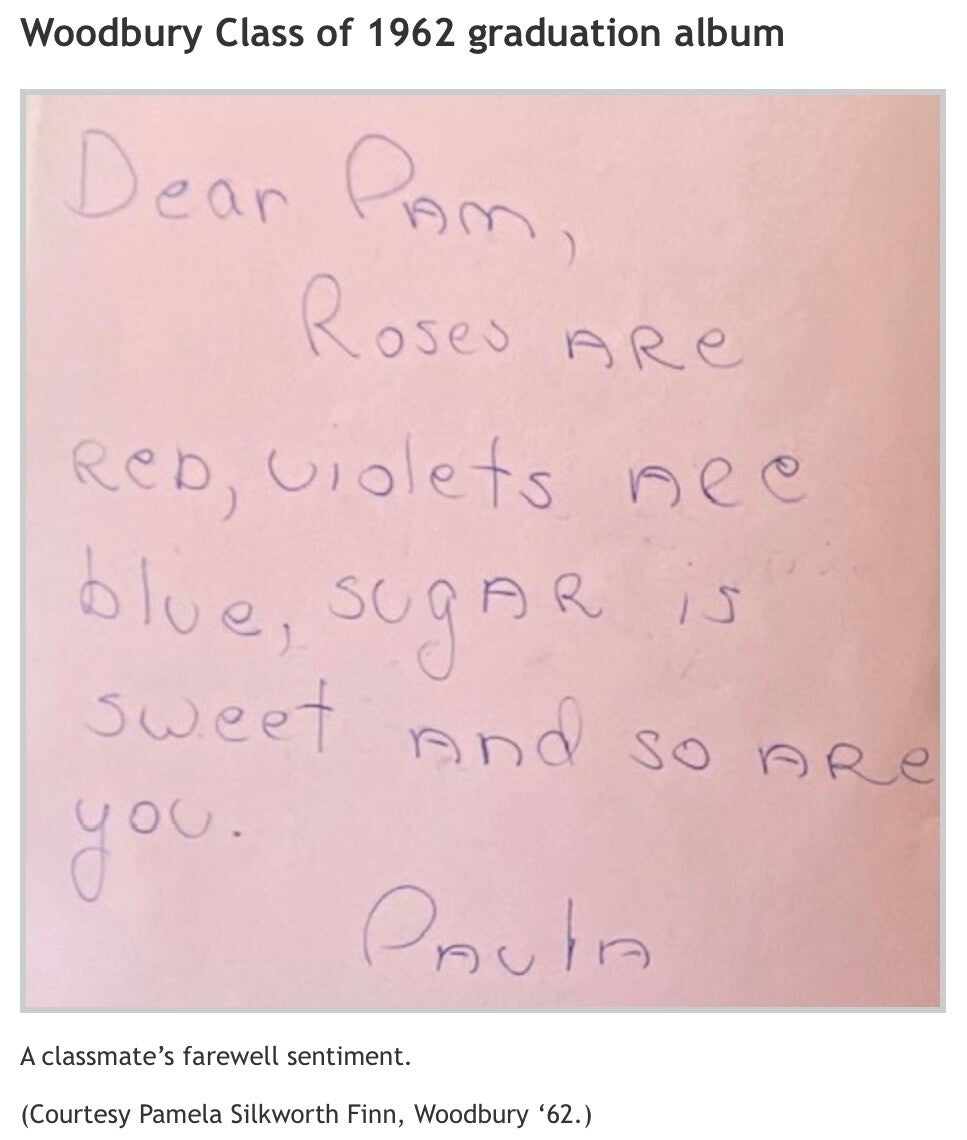 Woodbury Class of 1962 graduation album
Dear Pam,
Roses ARe
ReD, violets ARe
blue, sugAR is
sweet And so ARe
you.
PAulA
A classmate’s farewell sentiment.
(Courtesy Pamela Silkworth Finn, Woodbury ‘62.)